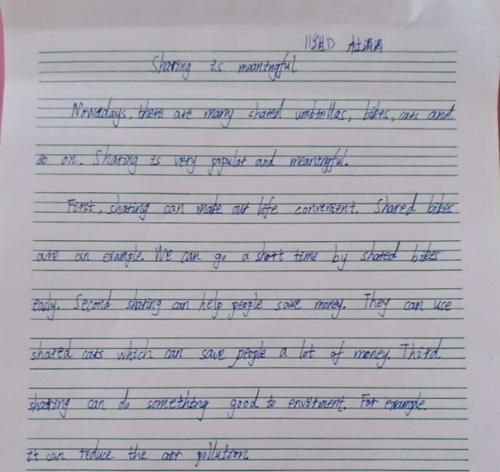 11组D 杜滴滴
Sharing is meaningful
Nowadays, there are many shared umbrellas, bikes, cars and
so on. Sharing is very popular and meaningful.
First, sharing can make our life convenient. Shared bikes
are an example. We can go a short time by shared bikes
easly. Second sharing can help people save money. They can use
shared cars which can save people a lot of money. Third
sharing can do something good to enverment. For example.
it can reduce the air pollution